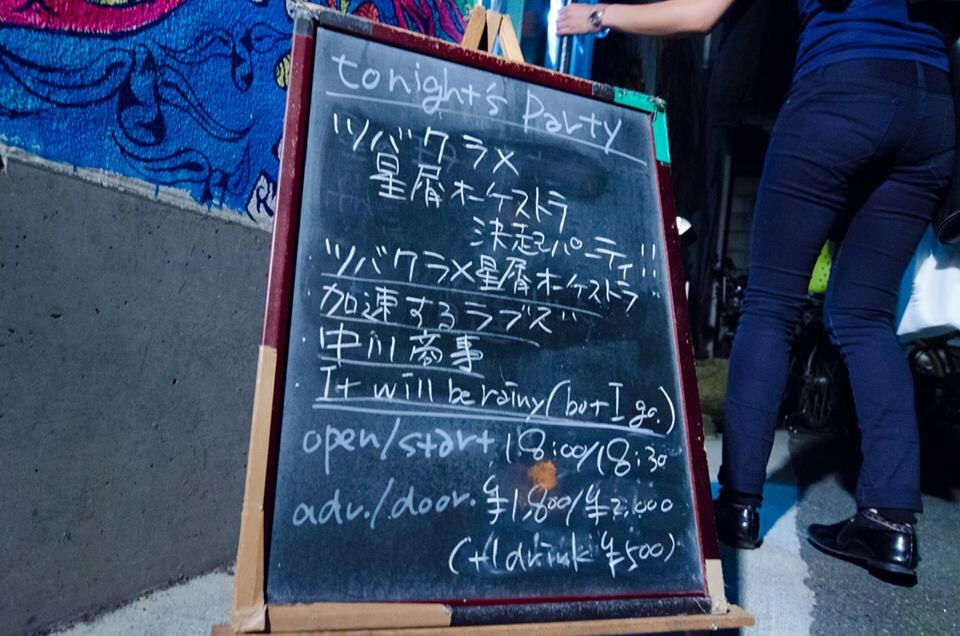 tonight's Party
ツバクラ×
星屑オーケストラ
決起パーティ!!
ツバクラ×星屑オーケストラ
加速するラブズ
中川商事
It will be rainy(but I go.)
open/start 18:00/18:30
adv./door. ¥1,800/¥2,000
(+1drink ¥500)